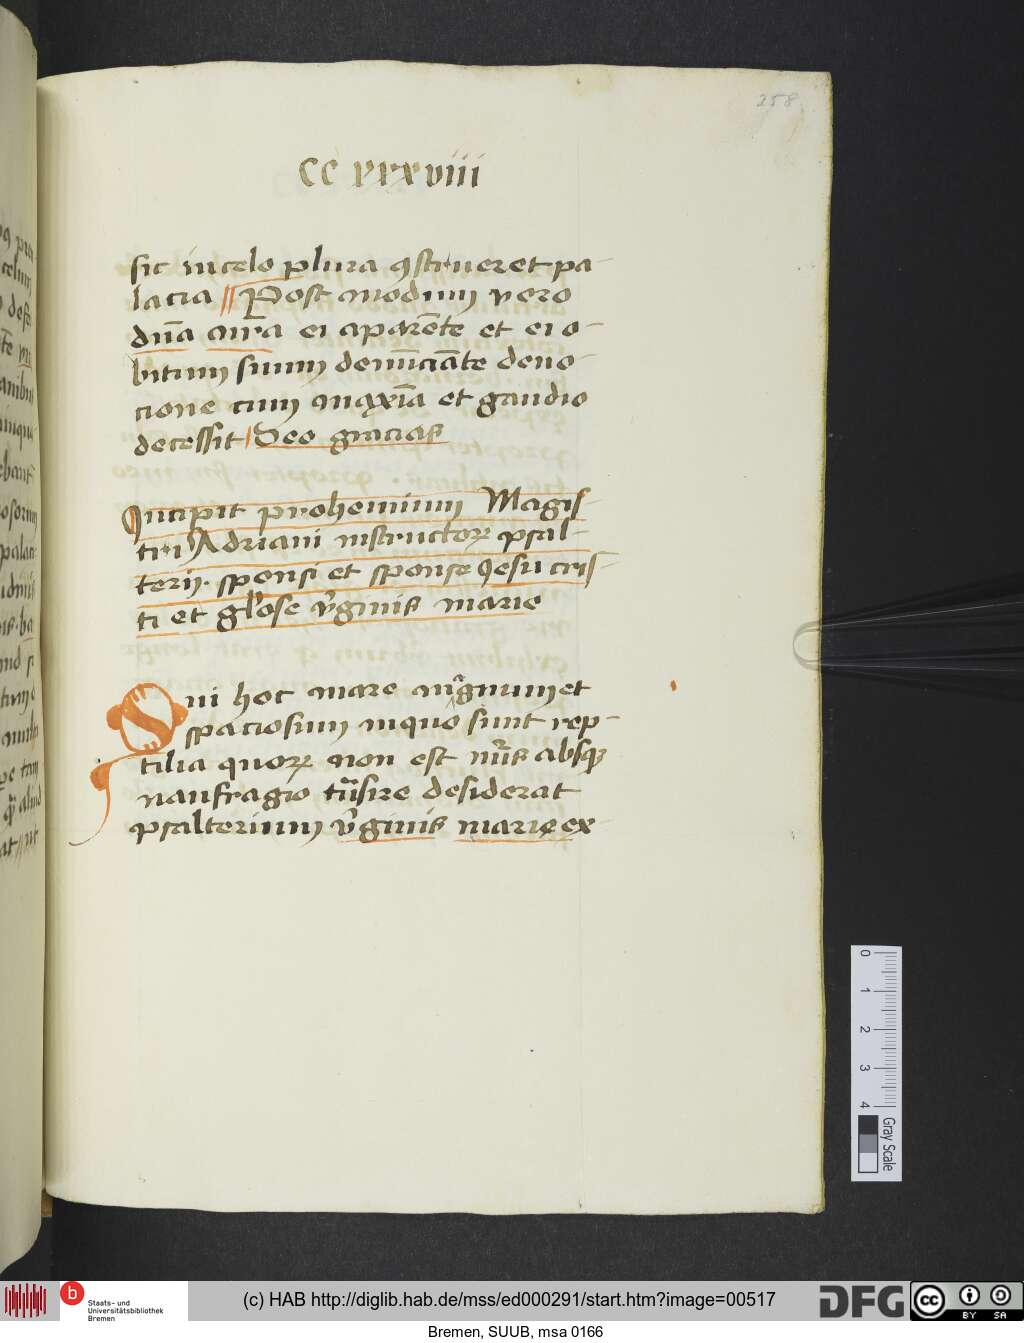 258
CC xxxviii
sic in celo plura ꝯstrueret pa-
lacia Post modum vero
dnā mrā ei aparēte et ei o-
bitum suum denūciāte deuo-
cione cum maxīa et gaudio
decessit Deo gracias
Incipit prohemium Magis-
tri Adriani instructoꝝ psal-
terij. sponsi et sponse Jesu cris-
ti et gl'ose v̓ginis marie
Qui hoc mare magnum et
spaciosum in quo sunt rep-
tilia quoꝝ non est nu᷒s absqꝫ
naufragio tn̄sire desiderat
psalterium v̓ginis marie ex
0 1 2 3 4
Gray Scale
b Staats- und
Universitätsbibliothek
Bremen
(c) HAB http://diglib.hab.de/mss/ed000291/start.htm?image=00517
DFG
CC BY SA
Bremen, SUUB, msa 0166